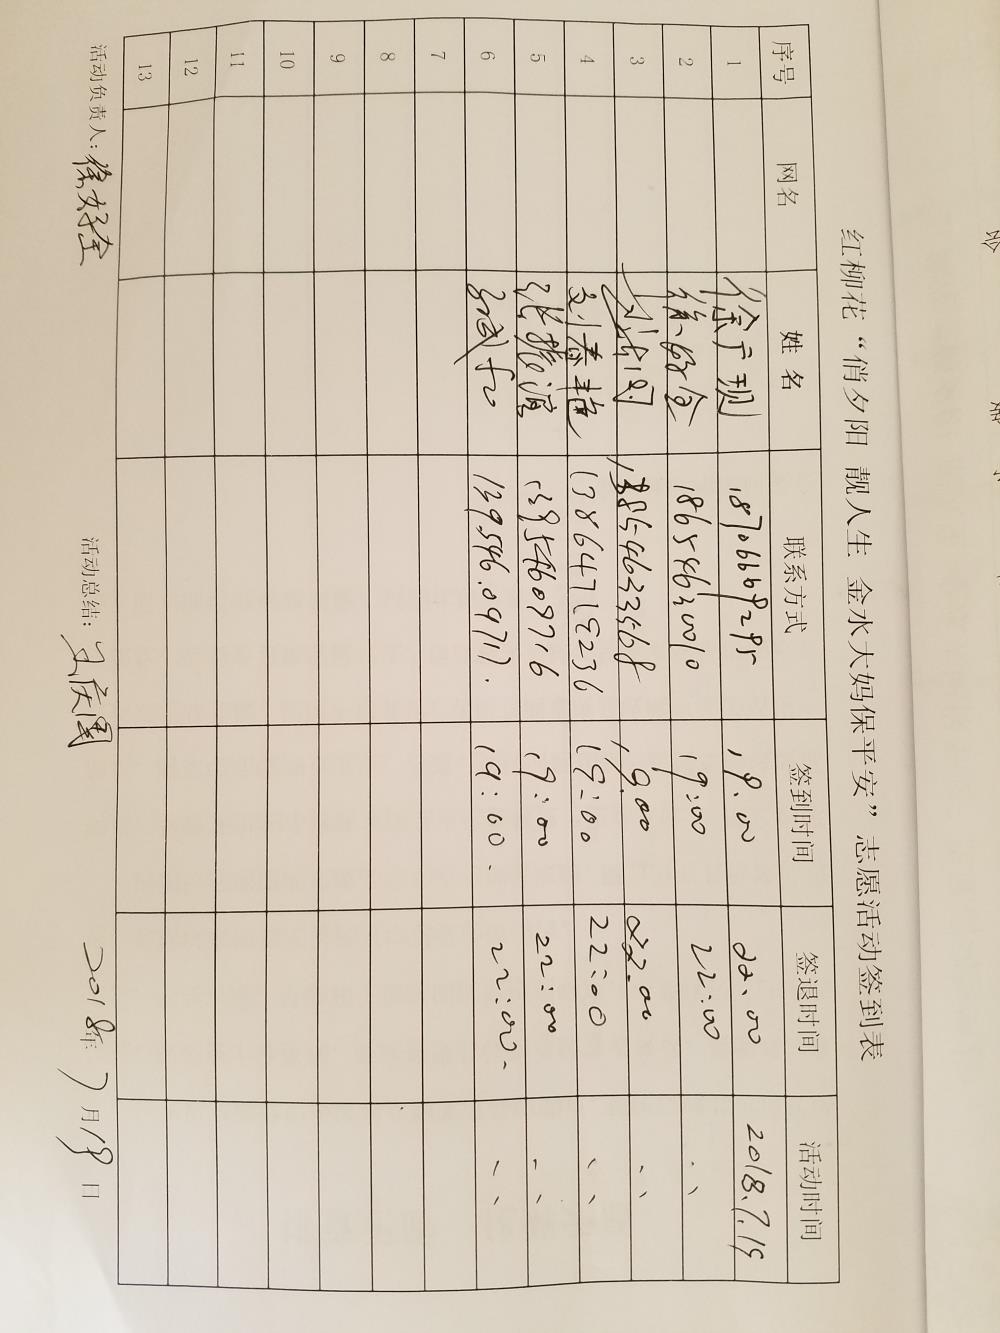 红柳花“俏夕阳 靓人生 金水大妈保平安”志愿活动签到表
序号 网名 姓名 联系方式 签到时间 签退时间 活动时间
1 徐广现 18706669295 19.00 22.00 2018.7.19
2 18654630010 19:00 22:00 、、
3 19.00 22.00 、、
4 刘春艳 13864719236 19:00 22:00 、、
5 张振滨 13954609716 19:00 22:00 、、
6 13954609717. 19:00. 22:00. 、、
7
8
9
10
11
12
13
活动负责人: 活动总结: 2018年7月19日